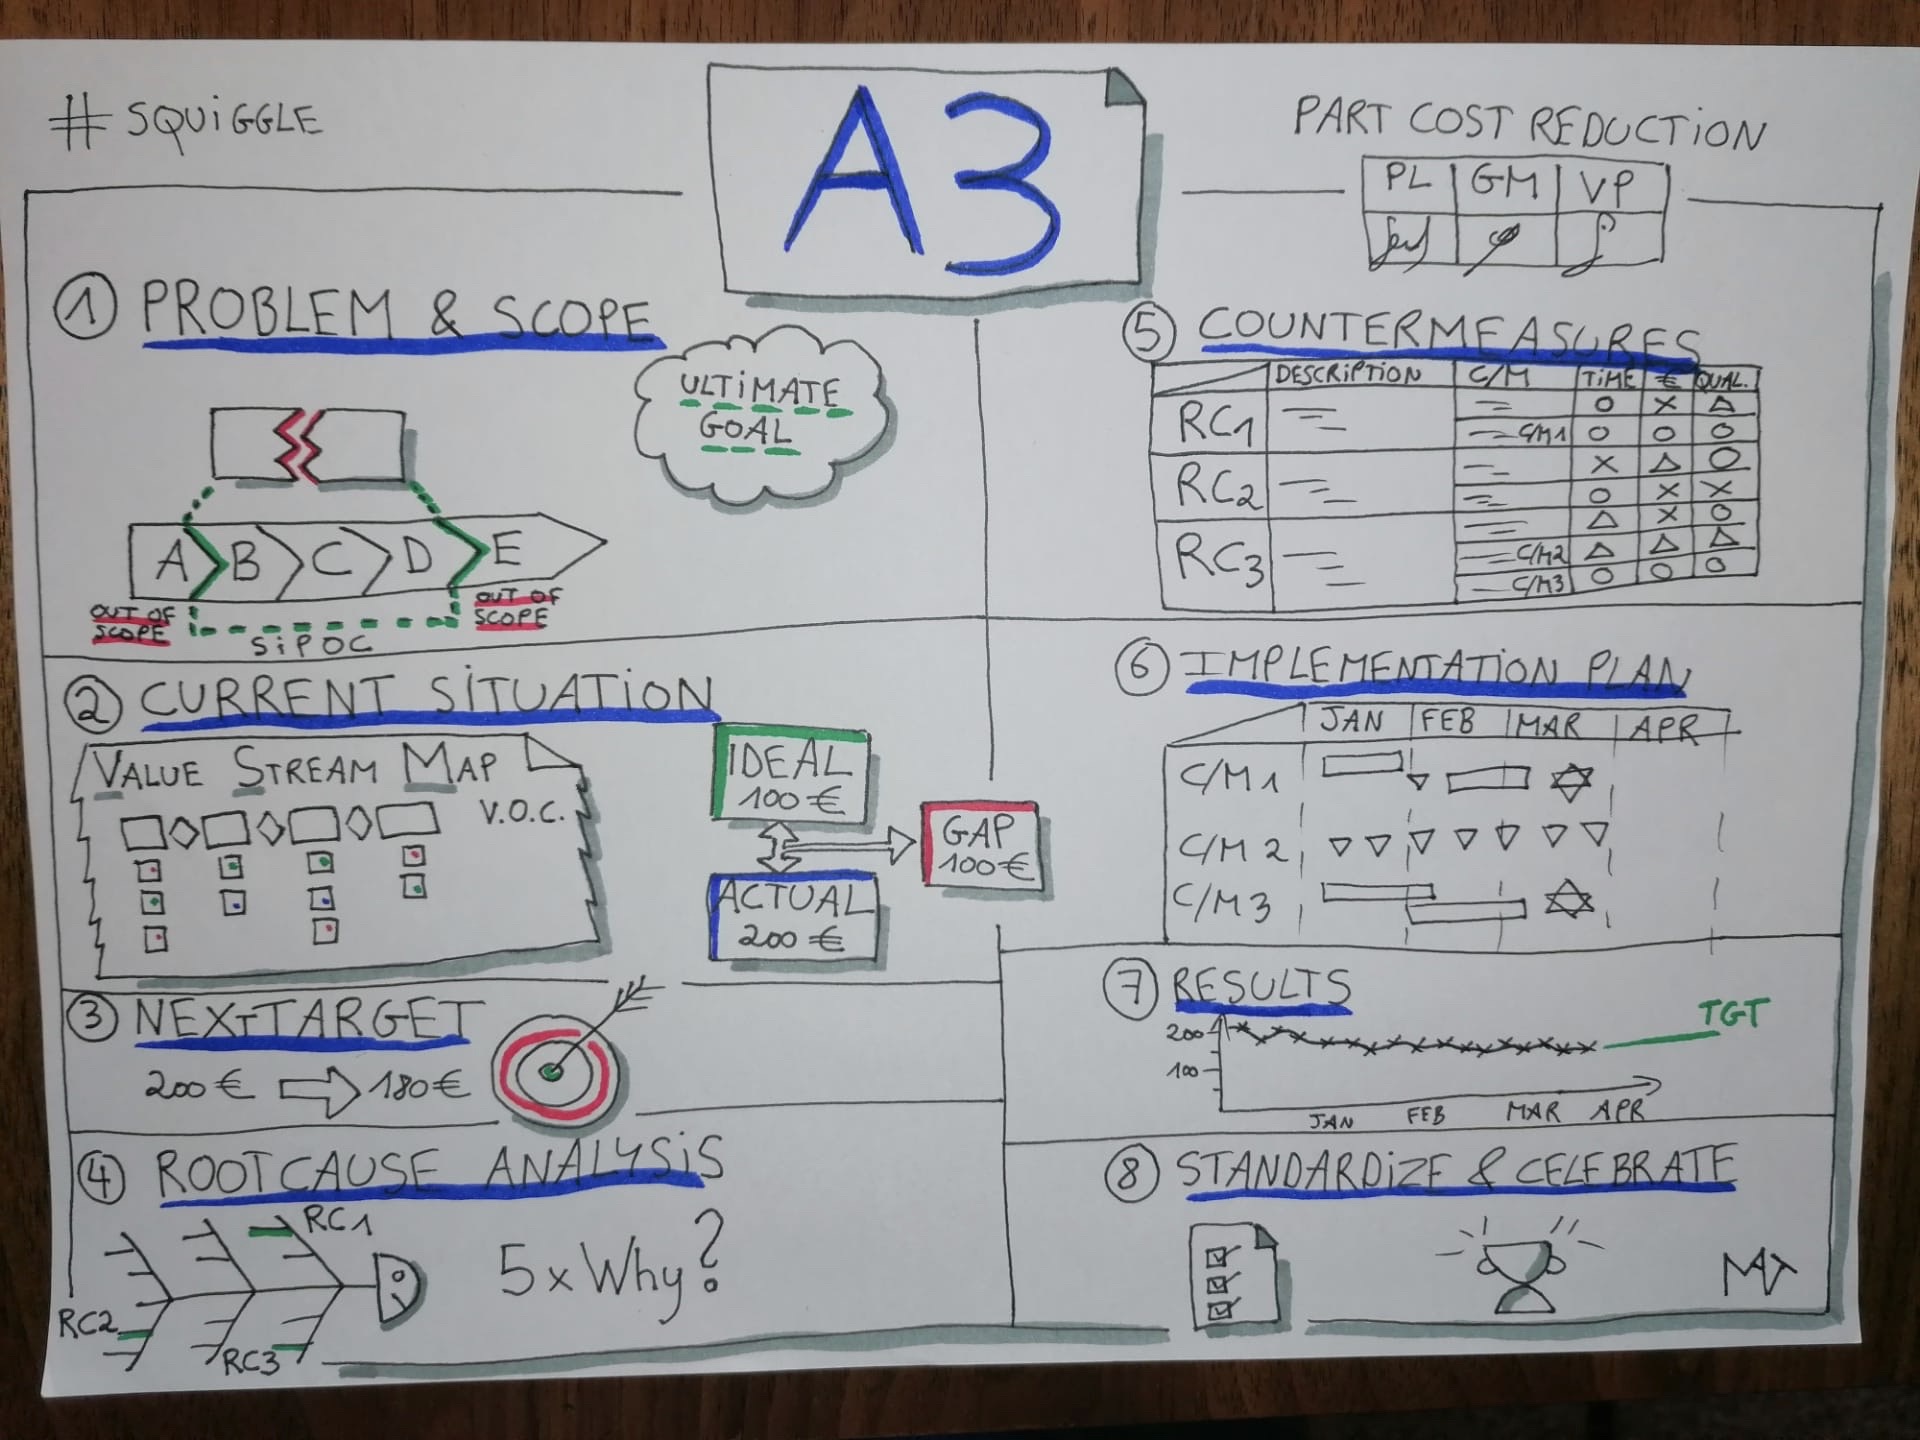 # SQUiGGLE
A3
PART COST REDUCTiON
PL GM VP
1 PROBLEM & SCOPE
ULTiMATE
GOAL
A B C D E
OUT OF
SCOPE
OUT OF
SCOPE
SiPOC
2 CURRENT SiTUATiON
VALUE STREAM MAP
V.O.C.
IDEAL
100 €
GAP
100 €
ACTUAL
200 €
3 NEXT TARGET
200 € 180 €
4 ROOT CAUSE ANALYSiS
RC1
RC2
RC3
5 x Why?
5 COUNTERMEASURES
DESCRIPTION C/M TiME € QUAL.
RC1
C/M1
RC2
RC3
C/M2
C/M3
6 IMPLEMENTATiON PLAN
JAN FEB MAR APR
C/M 1
C/M 2
C/M 3
7 RESULTS
200
100
TGT
JAN FEB MAR APR
8 STANDARDiZE & CELEBRATE